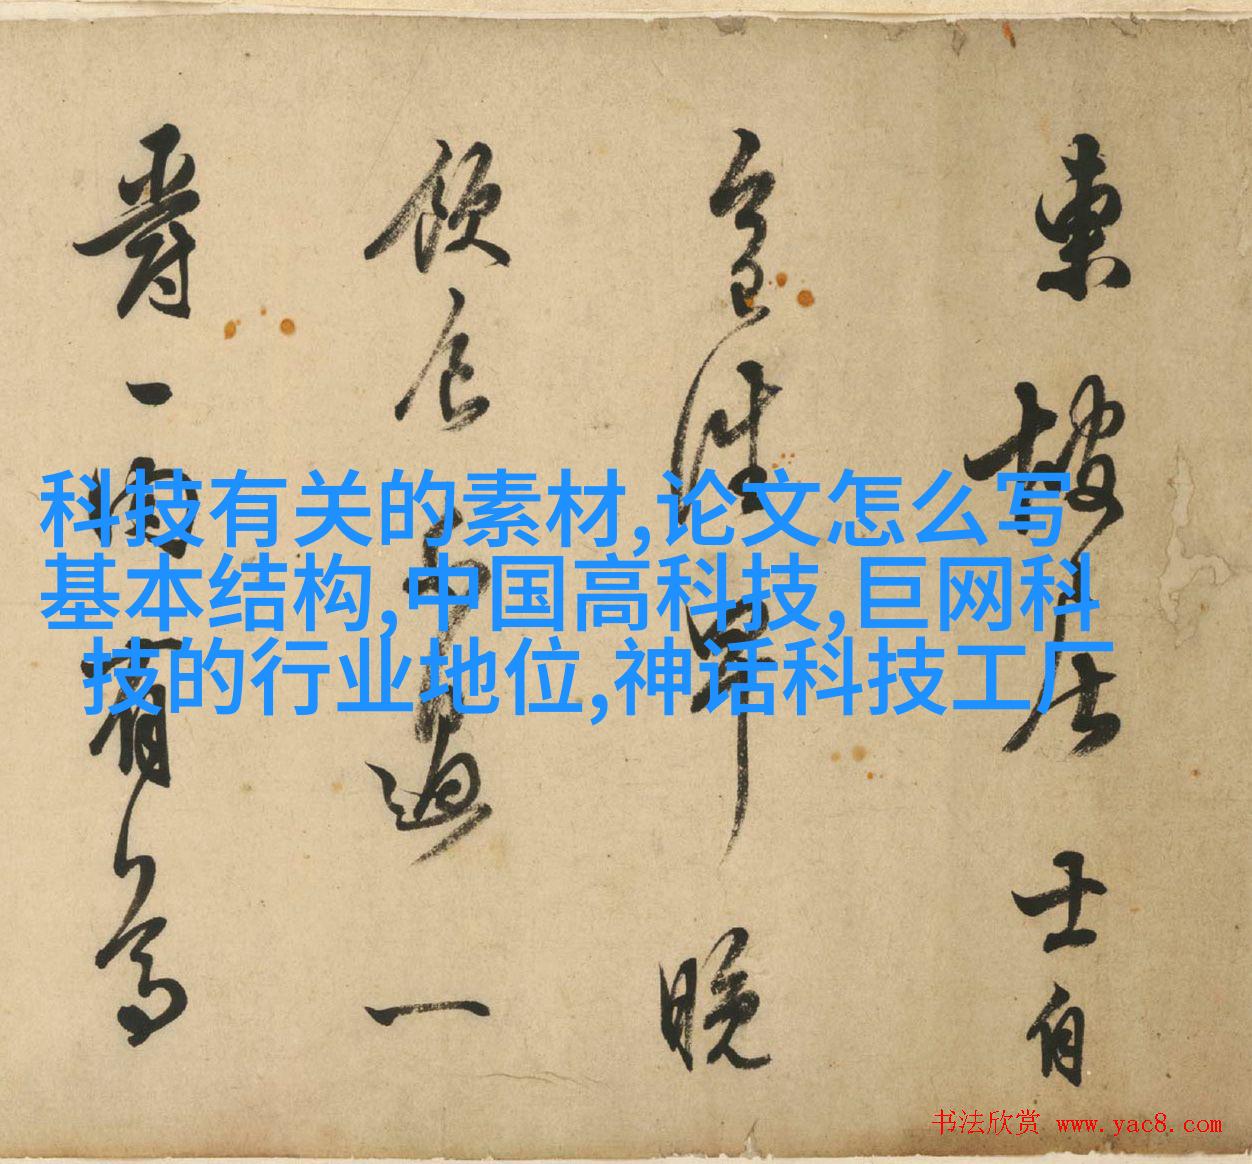 科技有关的素材,论文怎么写
基本结构,中国高科技,巨网科
技的行业地位,神话科技工厂
東坡居士自
今日往早晚
飲食不過一
爵一肉有
书法欣赏 www.yac8.com